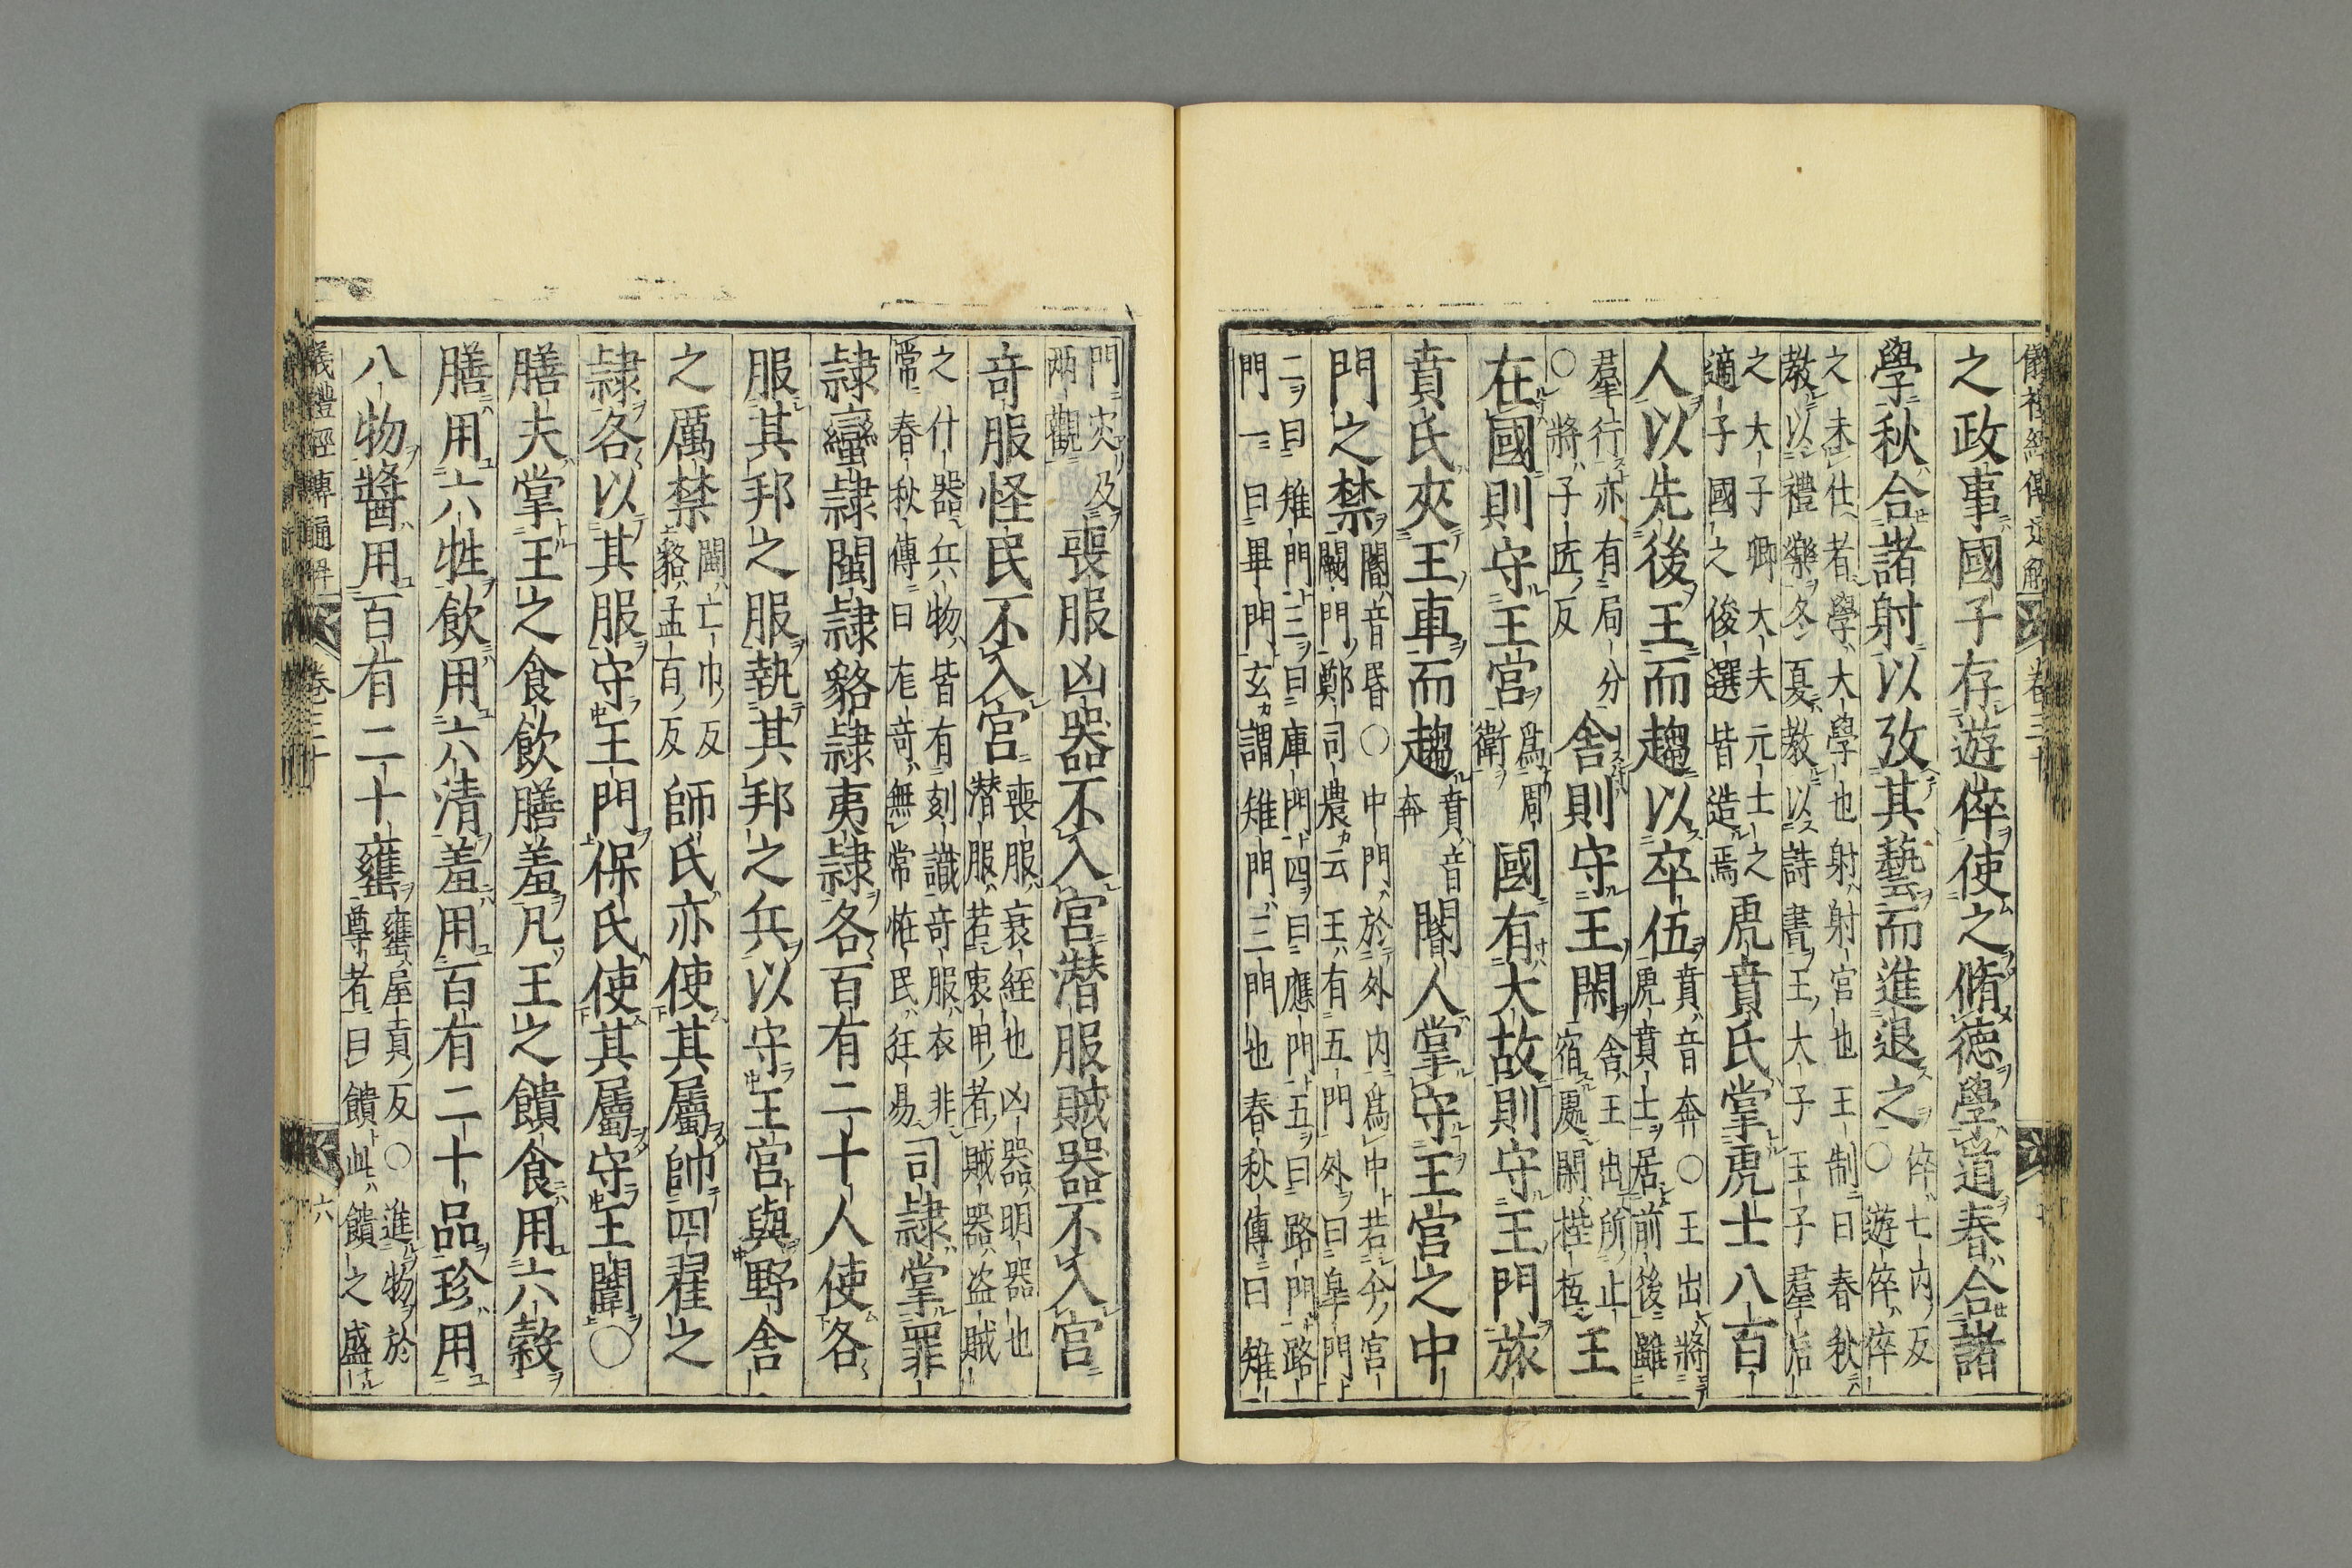 儀禮經傳通解 卷三十
之政事國子存遊倅使之脩德學道春合諸
學秋合諸射以攷其藝而進退之
倅七内反
○遊倅倅
之未仕者學大學也射射宮也王制曰春秋
教以禮樂冬夏教以詩書王大子王子羣后
之大子卿大夫元士之
適子國之俊選皆造焉
虎賁氏掌虎士八百
人以先後王而趨以卒伍
賁音奔○王出將
虎賁士居前後雖
羣行亦有局分
○將子匠反
舍則守王閑
舍王出所止
宿處閑梐枑
王
在國則守王宮
爲周
衛
國有大故則守王門旅
賁氏夾王車而趨
賁音
奔
閽人掌守王宮之中
門之禁
閽音昏○中門於外内爲中若今宮
闕門鄭司農云王有五門外曰皋門
二曰雉門三曰庫門四曰應門五曰路門路
門一曰畢門玄謂雉門三門也春秋傳曰雉
門灾及
两觀
喪服凶器不入宮潛服賊器不入宮
奇服怪民不入宮
喪服衰絰也凶器明器也
潛服若衷甲者賊器盗賊
之什器兵物皆有刻識奇服衣非
常春秋傳曰尨奇無常怪民狂易
司隷掌罪
隷蠻隷閩隷貉隷夷隷各百有二十人使各
服其邦之服執其邦之兵以守王宮與野舍
之厲禁
閩亡巾反
貉孟百反
師氏亦使其屬帥四翟之
隷各以其服守王門保氏使其屬守王闈○
膳夫掌王之食飲膳羞凡王之饋食用六穀
膳用六牲飲用六清羞用百有二十品珍用
八物醬用百有二十罋
罋屋貢反○進物於
尊者曰饋此饋之盛
儀禮經傳通解 卷三十 六